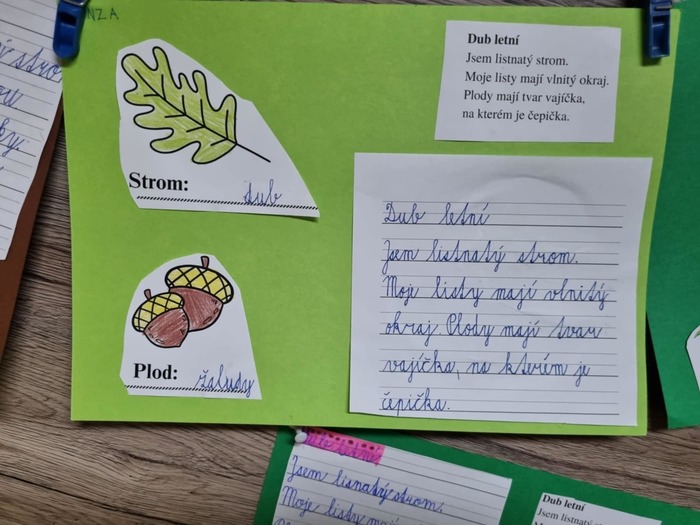 NZA
Dub letní
Jsem listnatý strom.
Moje listy mají vlnitý okraj.
Plody mají tvar vajíčka,
na kterém je čepička.
Strom: dub
Dub letní
Jsem listnatý strom.
Moje listy mají vlnitý
okraj. Plody mají tvar
vajíčka, na kterém je
čepička.
Plod: žaludy
Jsem lisnatý strom.
Moje listy mají
Dub letní
Jsem listnatý